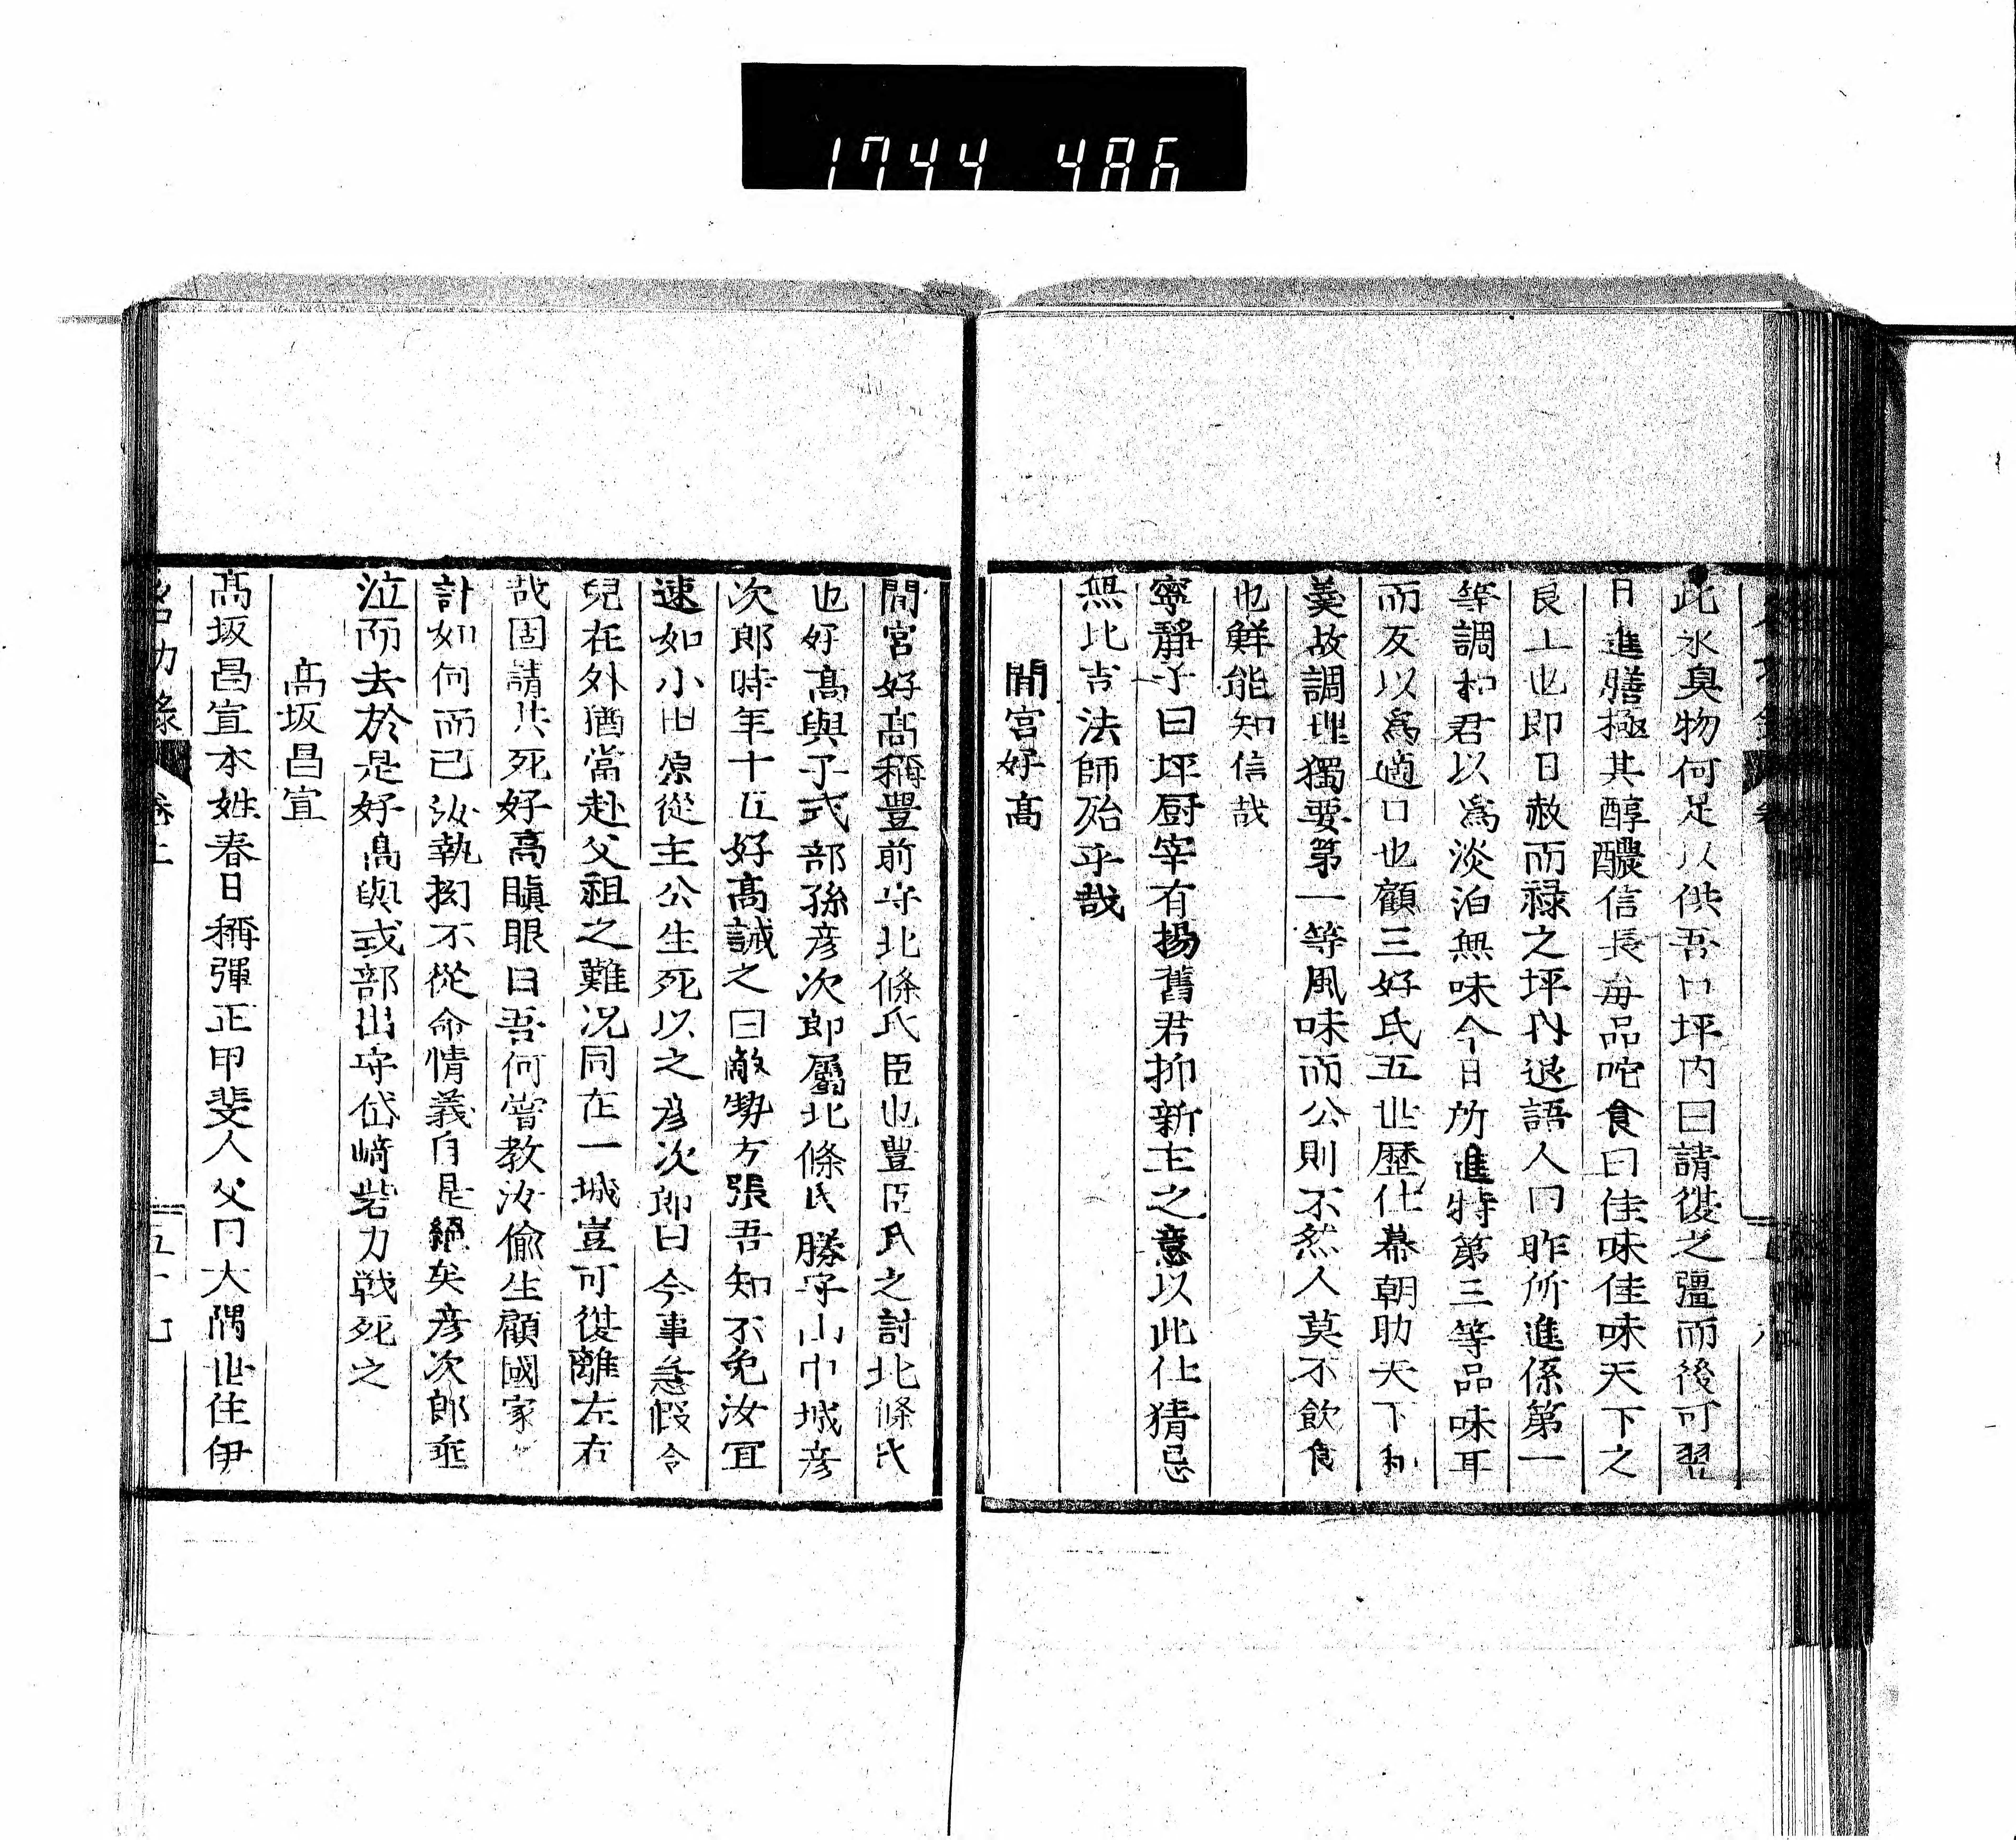 1744 486
此水臭物何足以供吾口坪内曰請復之彊而後可翌
日進膳極其醇醲信長每品咤食曰佳味佳味天下之
良工也即日赦而禄之坪内退語人曰昨所進係第一
等調和君以爲淡泊無味今日所進特第三等品味耳
而反以爲適口也顧三好氏五世歷仕幕朝助天下和
羹故調理獨要第一等風味而公則不然人莫不飲食
也鮮能知信哉
寧靜子曰坪厨宰有揚舊君抑新主之意以此仕猜忌
無比吉法師殆乎哉
間宮好高
間宮好高稱豐前守北條氏臣也豐臣氏之討北條氏
也好高與子式部孫彦次郎屬北條氏勝守山中城彦
次郎時年十五好高誡之曰敵勢方張吾知不免汝宜
速如小田原從主公生死以之彦次郎曰今事急假令
兒在外猶當赴父祖之難况同在一城豈可復離左右
哉固請共死好高瞋眼曰吾何嘗教汝偷生顧國家
計如何而已汝執拗不從命情義自是絕矣彦次郎垂
泣而去於是好高與式部出守岱﨑砦力戰死之
高坂昌宣
高坂昌宣本姓春日稱彈正甲斐人父曰大隅世住伊
卷上
五十七